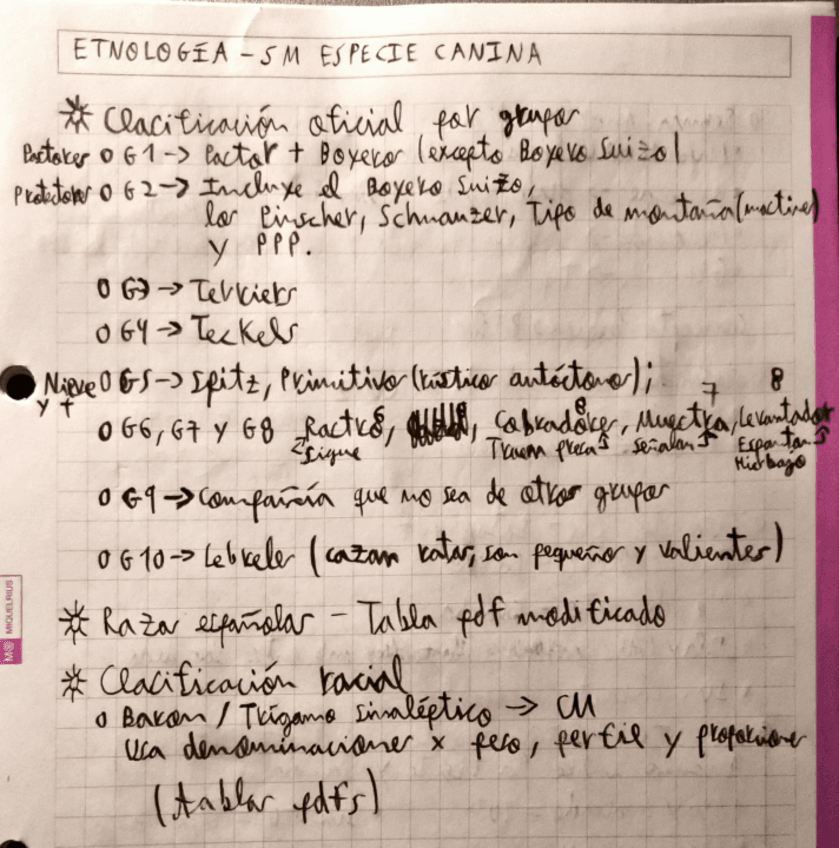 ETNOLOGÍA - 5M ESPECIE CANINA
Clasificación oficial por grupos
Pastores O G1 -> Pastor + Boyeros (excepto Boyero Suizo)
Protectores O G2 -> Incluye el Boyero Suizo,
los Pinscher, Schnauzer, Tipo de montaña (mastines)
y PPP.
O G3 -> Terriers
O G4 -> Teckels
Nieve O G5 -> Spitz, Primitivo (rústico autóctono);
y +
7 8
O G6, G7 y G8 Rastro, Cobradores, Muestra, Levantador
6 8
Sigue Traen presa Señalan Espantan
Hidrbago
O G9 -> Compañía que no sea de otros grupos
O G10 -> Lebreles (cazan ratas, son pequeños y valientes)
Razas españolas - Tabla pdf modificado
Clasificación racial
O Baron / Trígamo Sinaléptico -> CM
Usa denominaciones x peso, perfil y proporciones
(tablas pdfs)
MIQUELRIUS